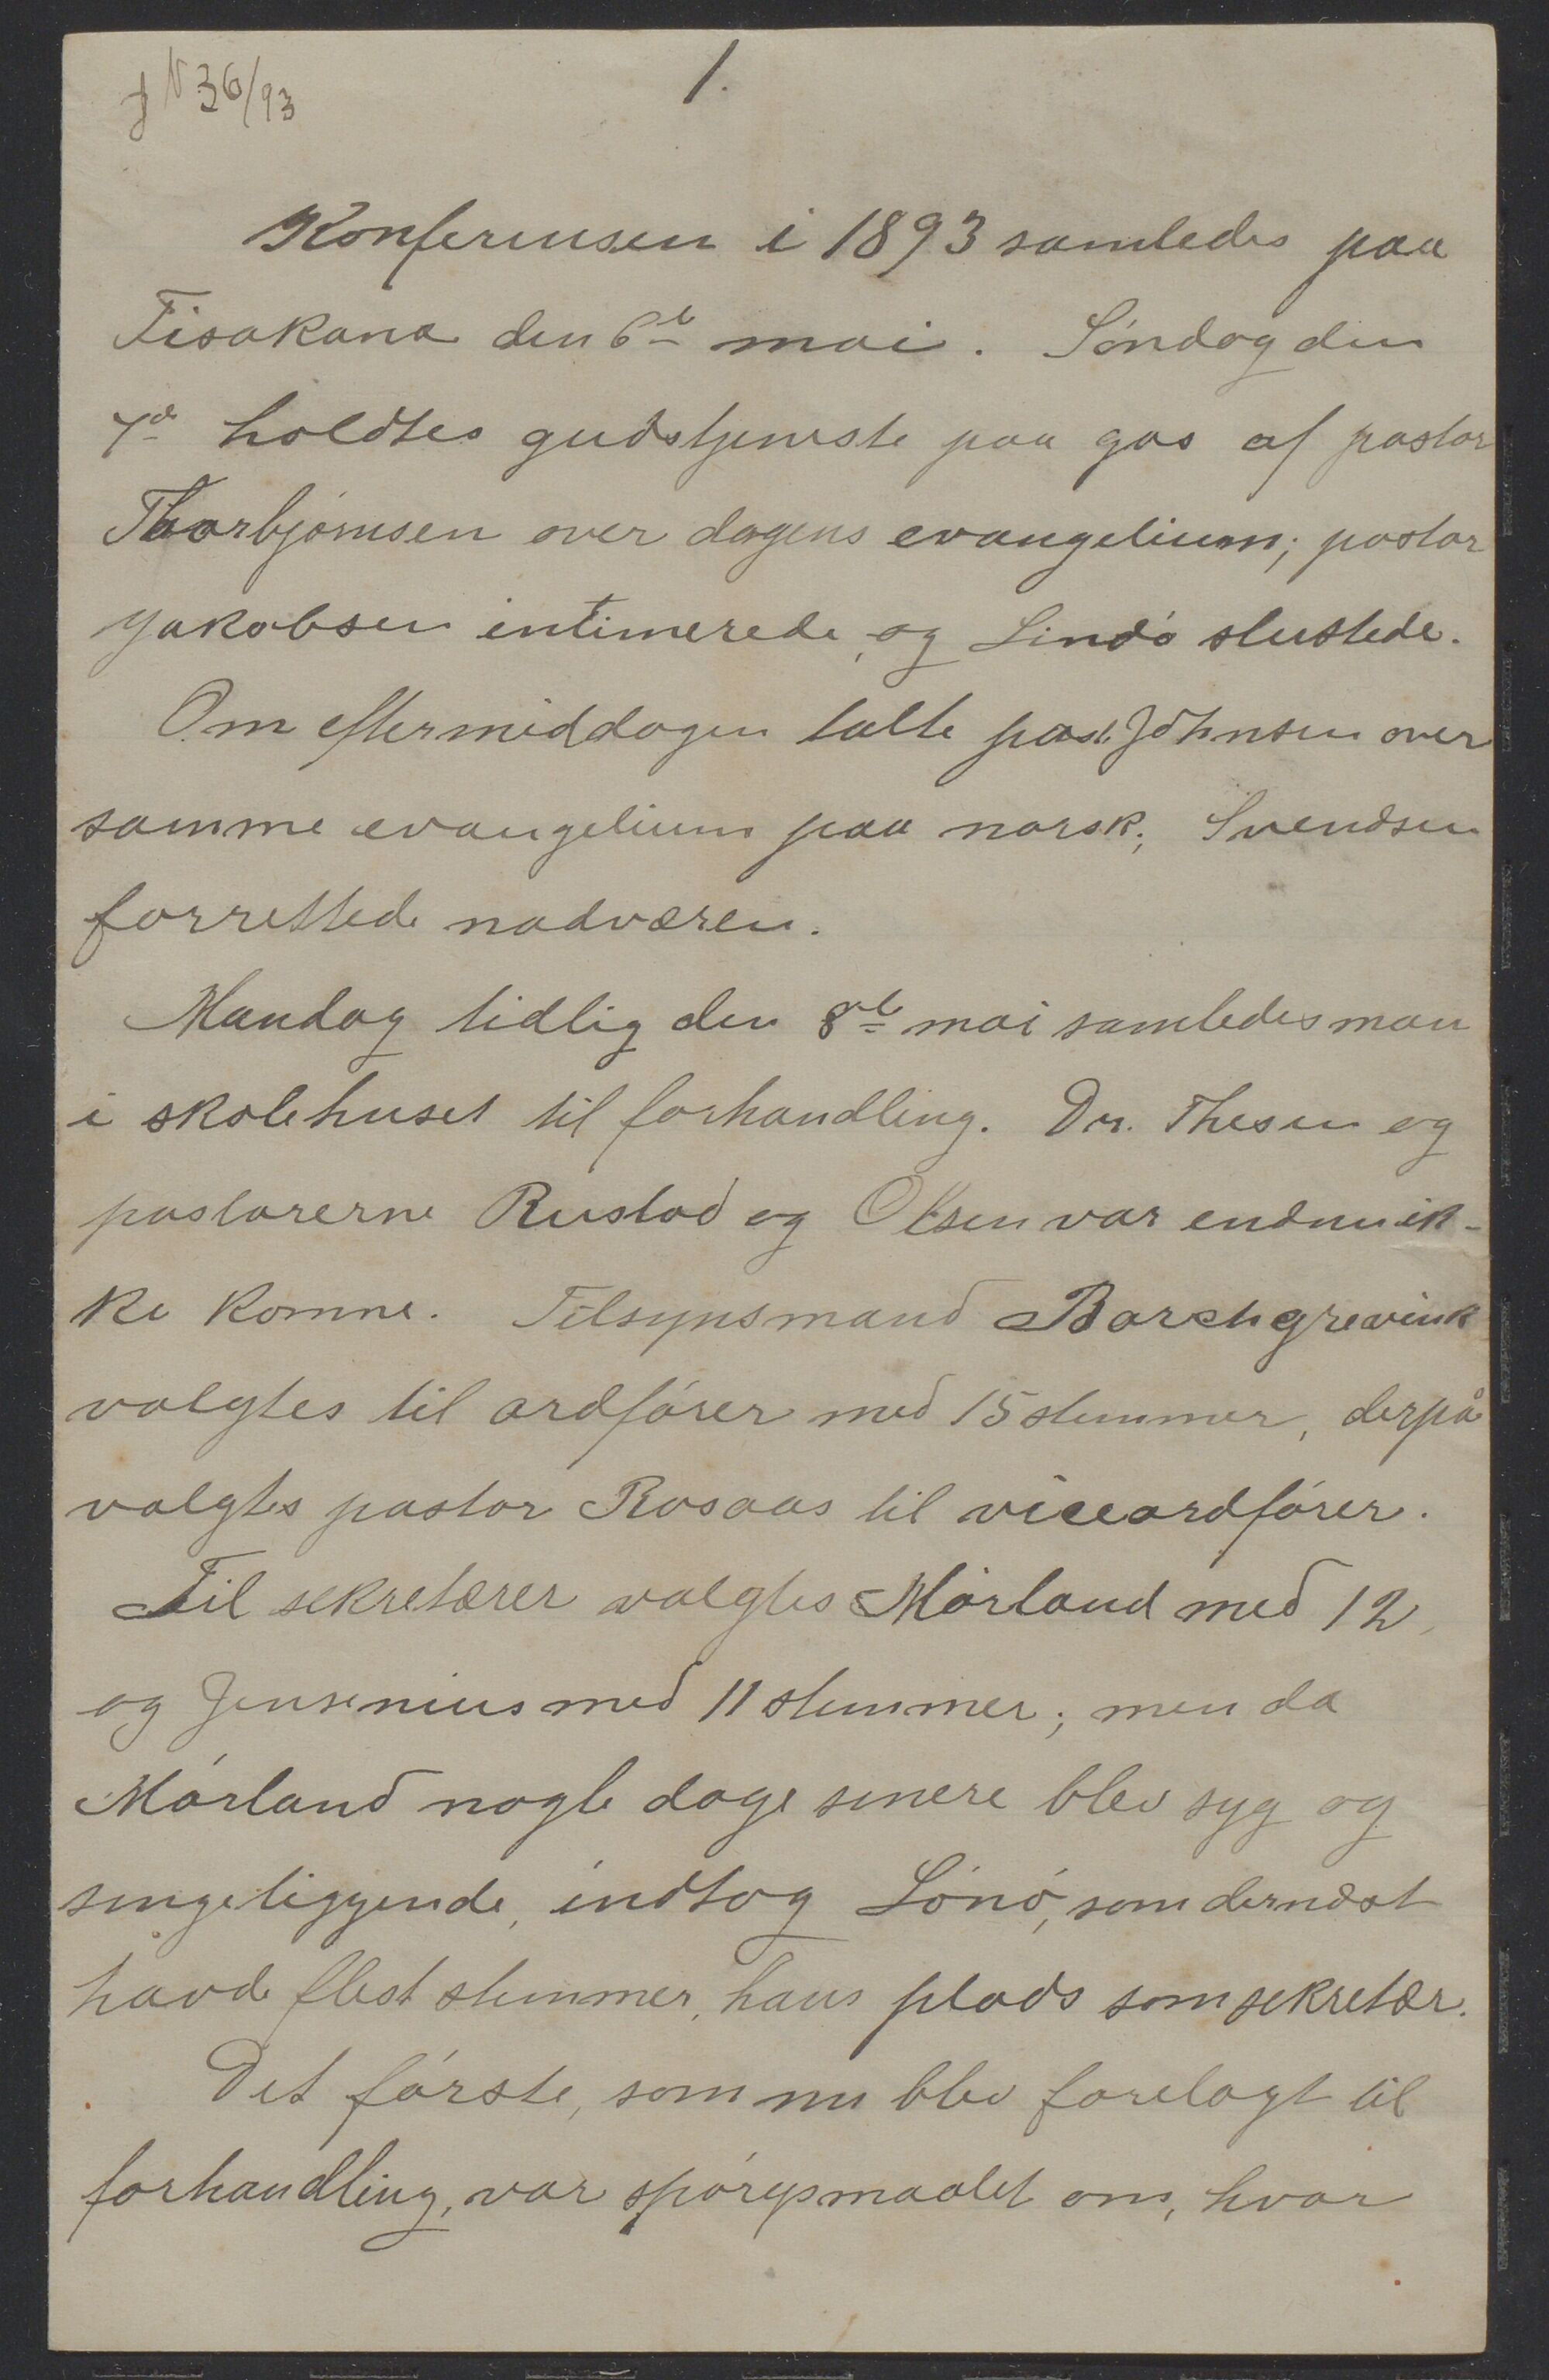 J N 36/93
1.
Konferensen i 1893 samledes paa
Fisakana den 6te mai. Söndag den
7de holdtes gudstjeneste paa gas af pastor
Thorbjörnsen over dagens evangelium; pastor
Jakobsen intimerede, og Lindö sluttede.
Om eftermiddagen talte past. Johnsen over
samme evangelium paa norsk; Svendsen
forrettede nadveren.
Mandag tidlig den 8de mai samledes man
i skolehuset til forhandling. Dr. Thesen og
pastorerne Rustad og Olsen var endnu ik-
ke komne. Tilsynsmand Borchgrevink
valgtes til ordförer med 15 stemmer, derpå
valgtes pastor Rosaas til viceordförer.
Til sekretærer valgtes Mörland med 12,
og Jensenius med 11 stemmer; men da
Mörland nogle dage senere blev syg og
sengeliggende, indtog Lönö, som dernæst
havde flest stemmer, hans plads som sekretær.
Det förste, som nu blev forelagt til
forhandling, var spörgsmaalet om, hvor